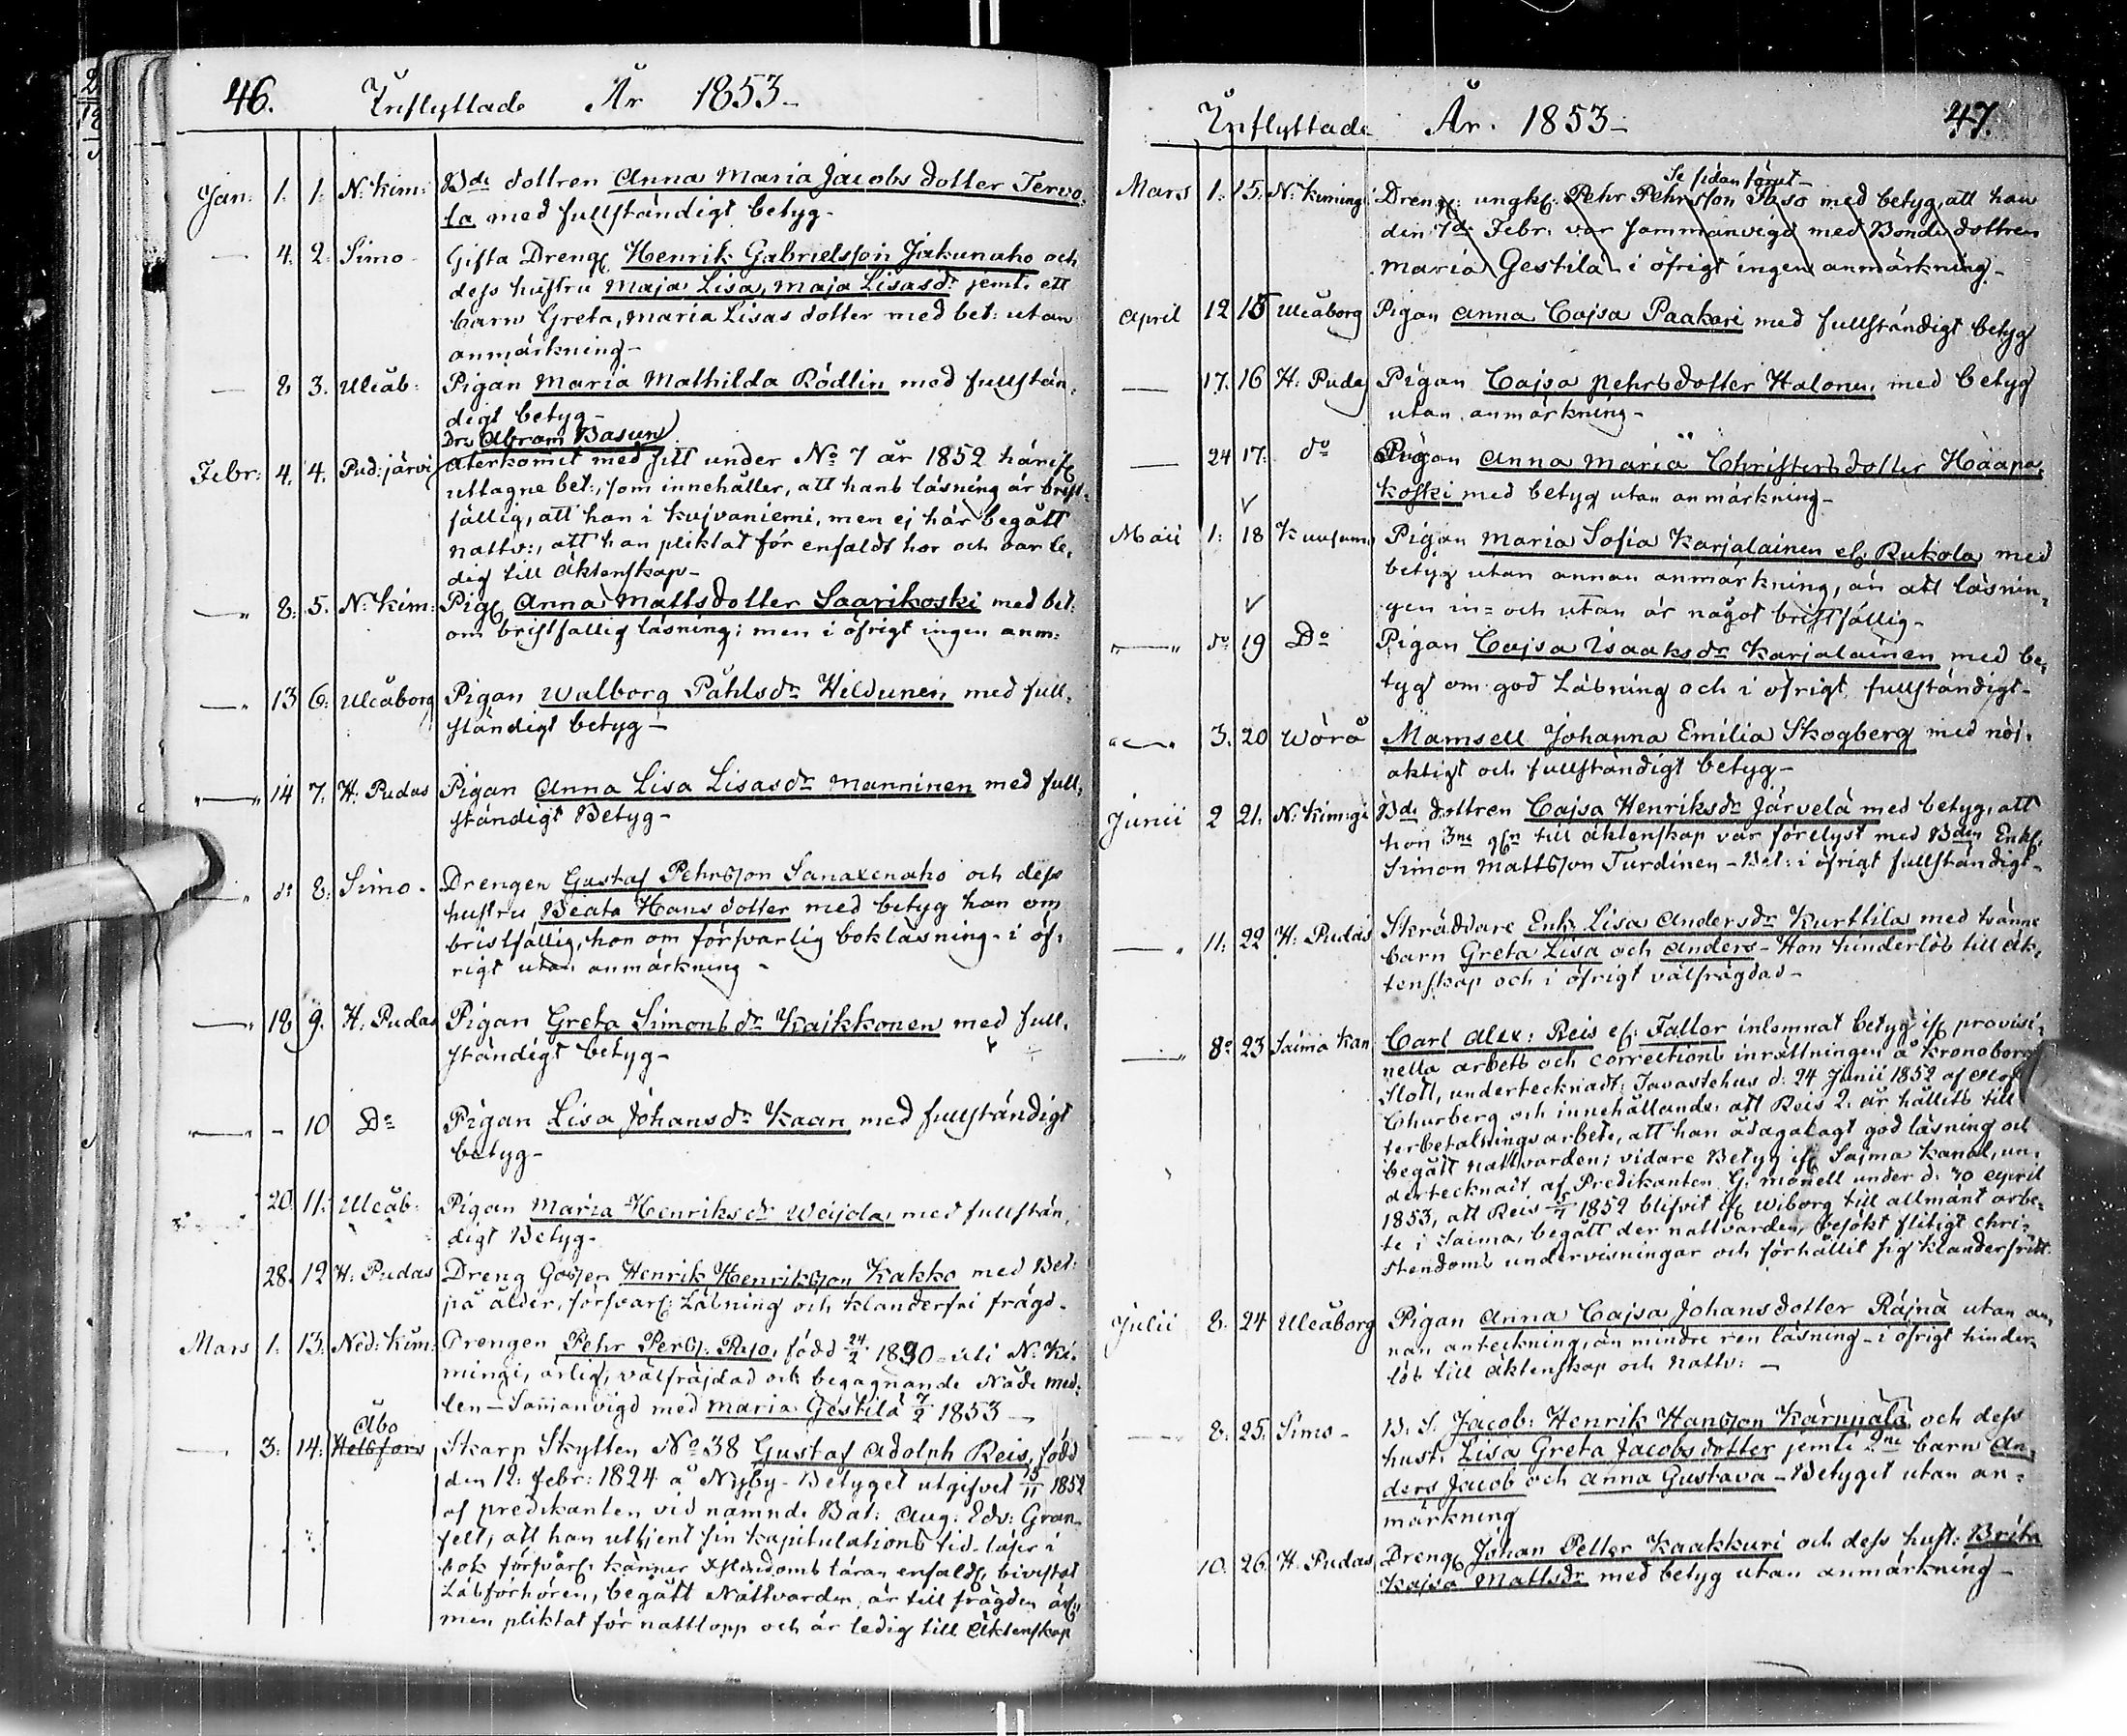 46. Inflyttade År 1853-
Jan: 1. 1. N: Kim: Bde dottren Anna Maria Jacobs dotter Tervo-
la med fullständigt betyg-
— 4. 2. Simo- Gifta Dreng Henrik Gabrielsson Jakunaho och
dess hustru Maja Lisa, Maja Lisasdr jemte ett
barn Greta, Maria Lisas dotter med bet: utan
anmärkning-
— 8 3. Uleåb: Pigan Maria Mathilda Rödlin med fullstän-
digt betyg-
Dr: Abram Basun
Febr: 4. 4. Pud:järvi återkomit med sitt under No 7 år 1852 härif
uttagne bet:, som innehåller, att hans läsning är brist-
fällig, att han i Kujvaniemi, men ej här begått
nattv:, att han pliktat för enfaldt hor och var le-
dig till äktenskap-
— 8. 5. N: Kim: Pig Anna Mattsdotter Saarikoski med bet.
om bristfällig läsning; men i öfrigt ingen anm:
— 13 6: Uleåborg Pigan Walborg Påhlsdr Heldunen med full-
ständigt betyg-
— 14 7. H: Pudas Pigan Anna Lisa Lisasdr Manninen med full-
ständigt Betyg-
— do 8: Simo- Drengen Gustaf Pehrsson Sanaxenaho och dess
hustru Beata Hansdotter med betyg han om
bristfällig, hon om försvarlig bokläsning- i öf-
rigt utan anmärkning-
— 18 9. H: Pudas Pigan Greta Simonsdr Kaikkonen med full-
ständigt betyg-
— - 10 Do Pigan Lisa Johansdr Kaan med fullständigt
betyg-
20 11: Uleåb: Pigan Maria Henriksdr Weijola, med fullstän-
digt Betyg-
28. 12 H: Pudas Dreng Gossen Henrik Henriksson Kakko med Bet:
på ålder, försvarl: Läsning och klanderfri frägd-
Mars 1. 13. Ned: Kim: Drengen Pehr Pers: Ryo, född 24/2 1830 uti N: Ki-
mingi, ärlig, välfräjdad och begagnande Nåde med-
len- Samanvigd med Maria Gestilä 7/2 1853-
Åbo
— 3: 14: Helsfors Skarp Skytten No 38 Gustaf Adolph Reis, född
den 12: febr: 1824 å Nyby- Betyget utgifvet 15/11 1852
af predikanten vid nämnde Bat: Aug: Edv: Gran-
felt, att han uttjent sin Kapitulations tid- läser i
bok försvarl: känner Xstendoms läran enfaldl: bivistat
Läsförhören, begått Nattvarden, är till frägden ärl:
men pliktat för nattlopp och är ledig till Äktenskap
Inflyttade År. 1853- 47.
Se sidan förut-
Mars 1. 15. N: Kimingi Dreng: ungk: Pehr Pehrsson Paso med betyg, att han
den 7de Febr: var sammanvigd med Bondedottren
Maria Gestilä- i öfrigt ingen anmärkning-
April 12 15 Uleåborg Pigan Anna Cajsa Paakari med fullständigt betyg
— 17. 16 H: Pudas Pigan Cajsa Pehrsdotter Halonen, med betyg
utan anmärkning-
— 24 17: do Pigan Anna Maria Christersdotter Haapa-
koski med betyg utan anmärkning-
Maii 1: 18 Kuusamo Pigan Maria Sofia Karjalainen el: Rukola med
betyg utan annan anmärkning, än att läsnin-
gen in- och utan är något bristfällig-
— do 19 Do Pigan Cajsa Isaaksdr Karjalainen med be-
tyg om god Läsning och i öfrigt fullständigt-
— 3. 20 Wörå Mamsell Johanna Emilia Skogberg med nöj-
aktigt och fullständigt betyg-
Junii 2 21. N: Kim:gi Bde dottren Cajsa Henriksdr Järvelä med betyg, att
hon 3ne gr till äktenskap var förelyst med Bden Enkl:
Simon Mattsson Turdinen- Bet: i öfrigt fullständigt-
— 11: 22 H: Pudas Skräddare Enk: Lisa Andersdr Kurttila med tvänne
barn Greta Lisa och Anders- Hon hinderlös till äk-
tenskap och i öfrigt välfrägdad-
— 8: 23 Saima Kan Carl Alex: Reis el: Faller inlemnat betyg if provisi-
nella arbets och corrections inrättningen å Kronoborg
Slott, undertecknadt: Tavastehus d: 24 Junii 1852 af Olof
Churberg och innehållande: att Reis 2 år hållits till
terbetalningsarbete, att han ådagalagt god läsning och
begått nattvarden; vidare Betyg if Saima Kanal, un-
dertecknadt af Predikanten G: Monell under d: 30 April
1853, att Reis 1852 blifvit if Wiborg till allmänt arbe-
te i Saima, begått der nattvarden, besökt flitigt chri-
stendoms undervisningar och förhållit sig klanderfritt.
Julii 8. 24 Uleåborg Pigan Anna Cajsa Johansdotter Räjnä utan an-
nan anteckning, än mindre ren läsning- i öfrigt hinder-
lös till Äktenskap och Nattv: —
— 8: 25. Simo- B: S: Jacob: Henrik Hansson Kärnnälä och dess
hust: Lisa Greta Jacobsdotter jemte 2ne barn An-
ders Jacob och Anna Gustava- Betyget utan an-
märkning
10. 26. H: Pudas Dreng Johan Petter Kaakkuri och dess hust: Brita
Kajsa Mattsdr med betyg utan anmärkning-